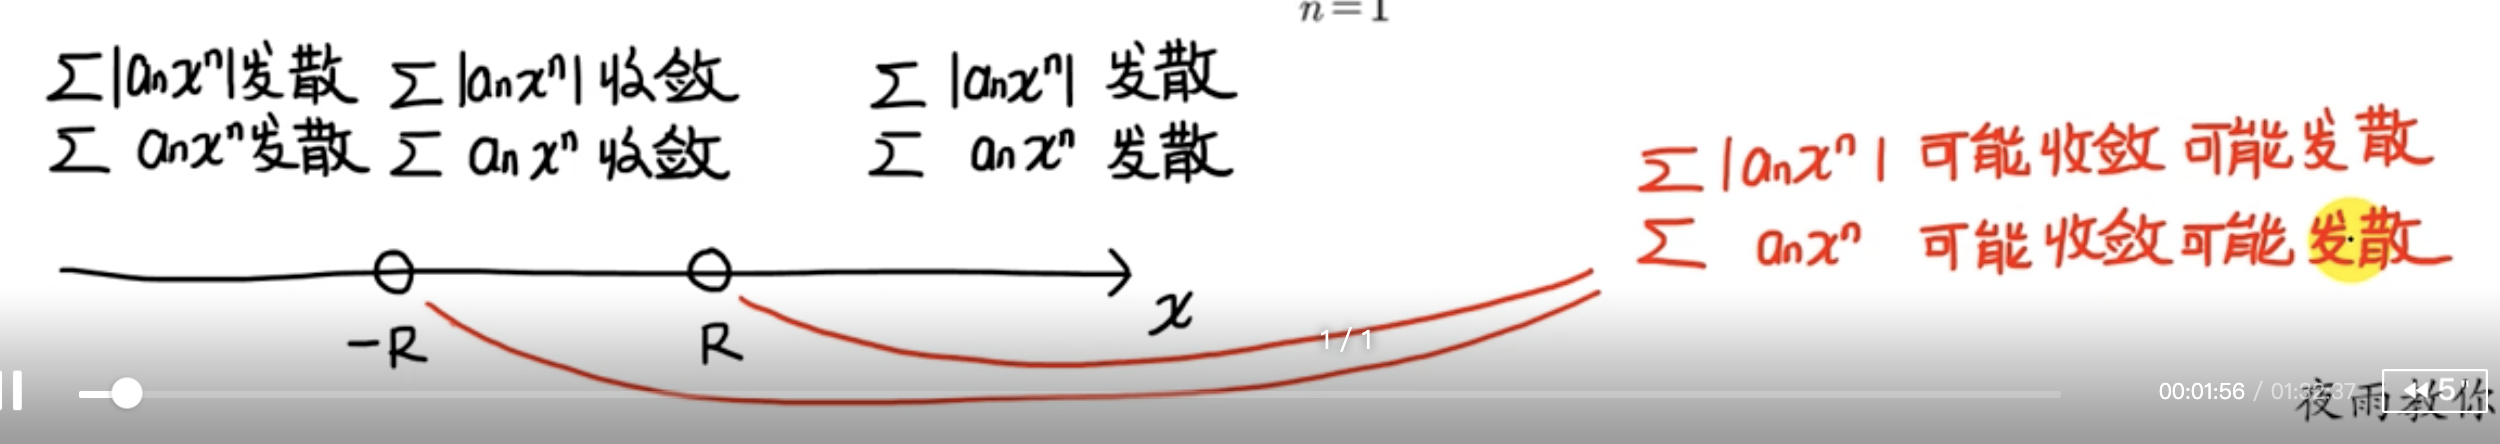 n=1
∑|anxⁿ|发散 ∑|anxⁿ|收敛 ∑|anxⁿ| 发散
∑ anxⁿ发散 ∑ anxⁿ收敛 ∑ anxⁿ 发散
∑|anxⁿ| 可能收敛 可能发散
∑ anxⁿ 可能收敛可能发散
-R R x
1 / 1
00:01:56 / 01:32:37 5"
夜雨教你